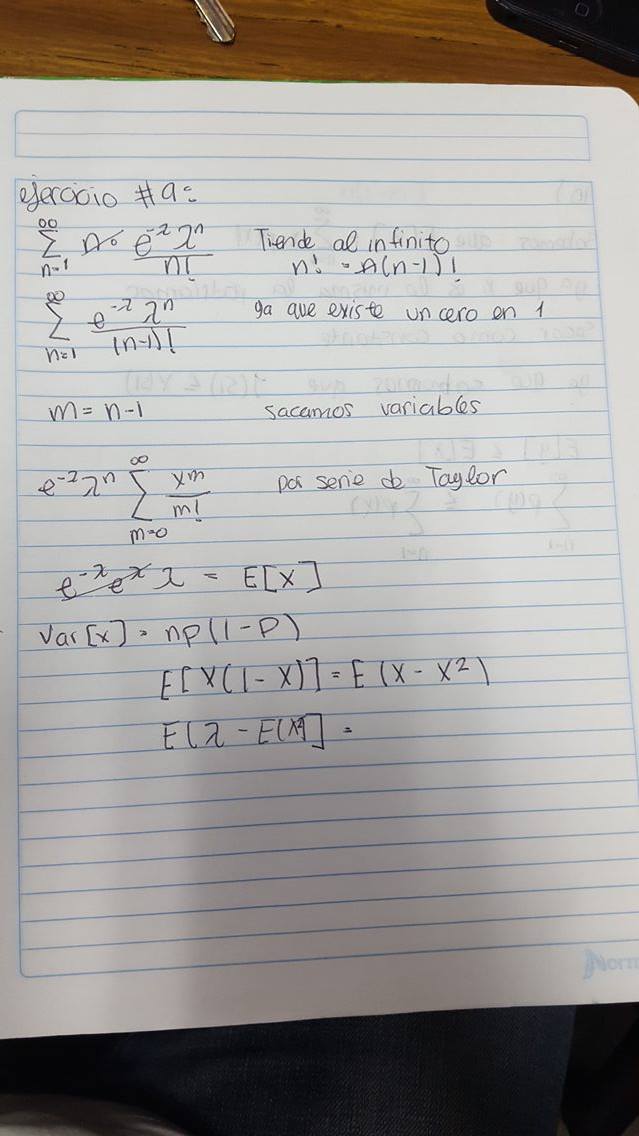 ejercicio #9:
∞ ∑ n=1 n · e^-λ λ^n / n! Tiende al infinito
n! = n(n-1)!
∞ ∑ n=1 e^-λ λ^n / (n-1)! ya que existe un cero en 1
m = n-1 sacamos variables
e^-λ λ^n ∞ ∑ m=0 λ^m / m! por serie de Taylor
e^-λ e^λ λ = E[X]
Var[x] = np(1-P)
E[X(1-X)] = E(X-X²)
E[λ - E(X²)] =
Norm